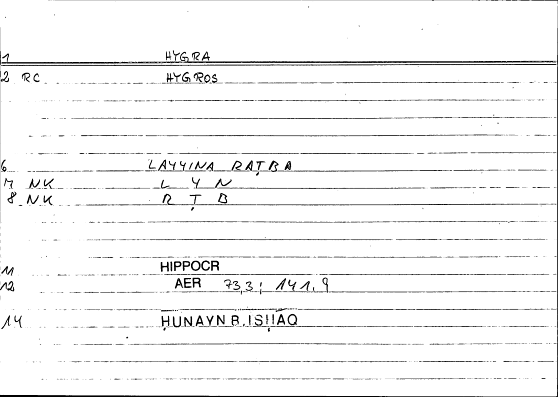 1 HYGRA
2 RC HYGROS
6 LAYYINA RAṬBA
7 NK L Y N
8 NK R Ṭ B
11 HIPPOCR
12 AER 73,3; 141,9
14 ḤUNAYN B. ISḤAQ